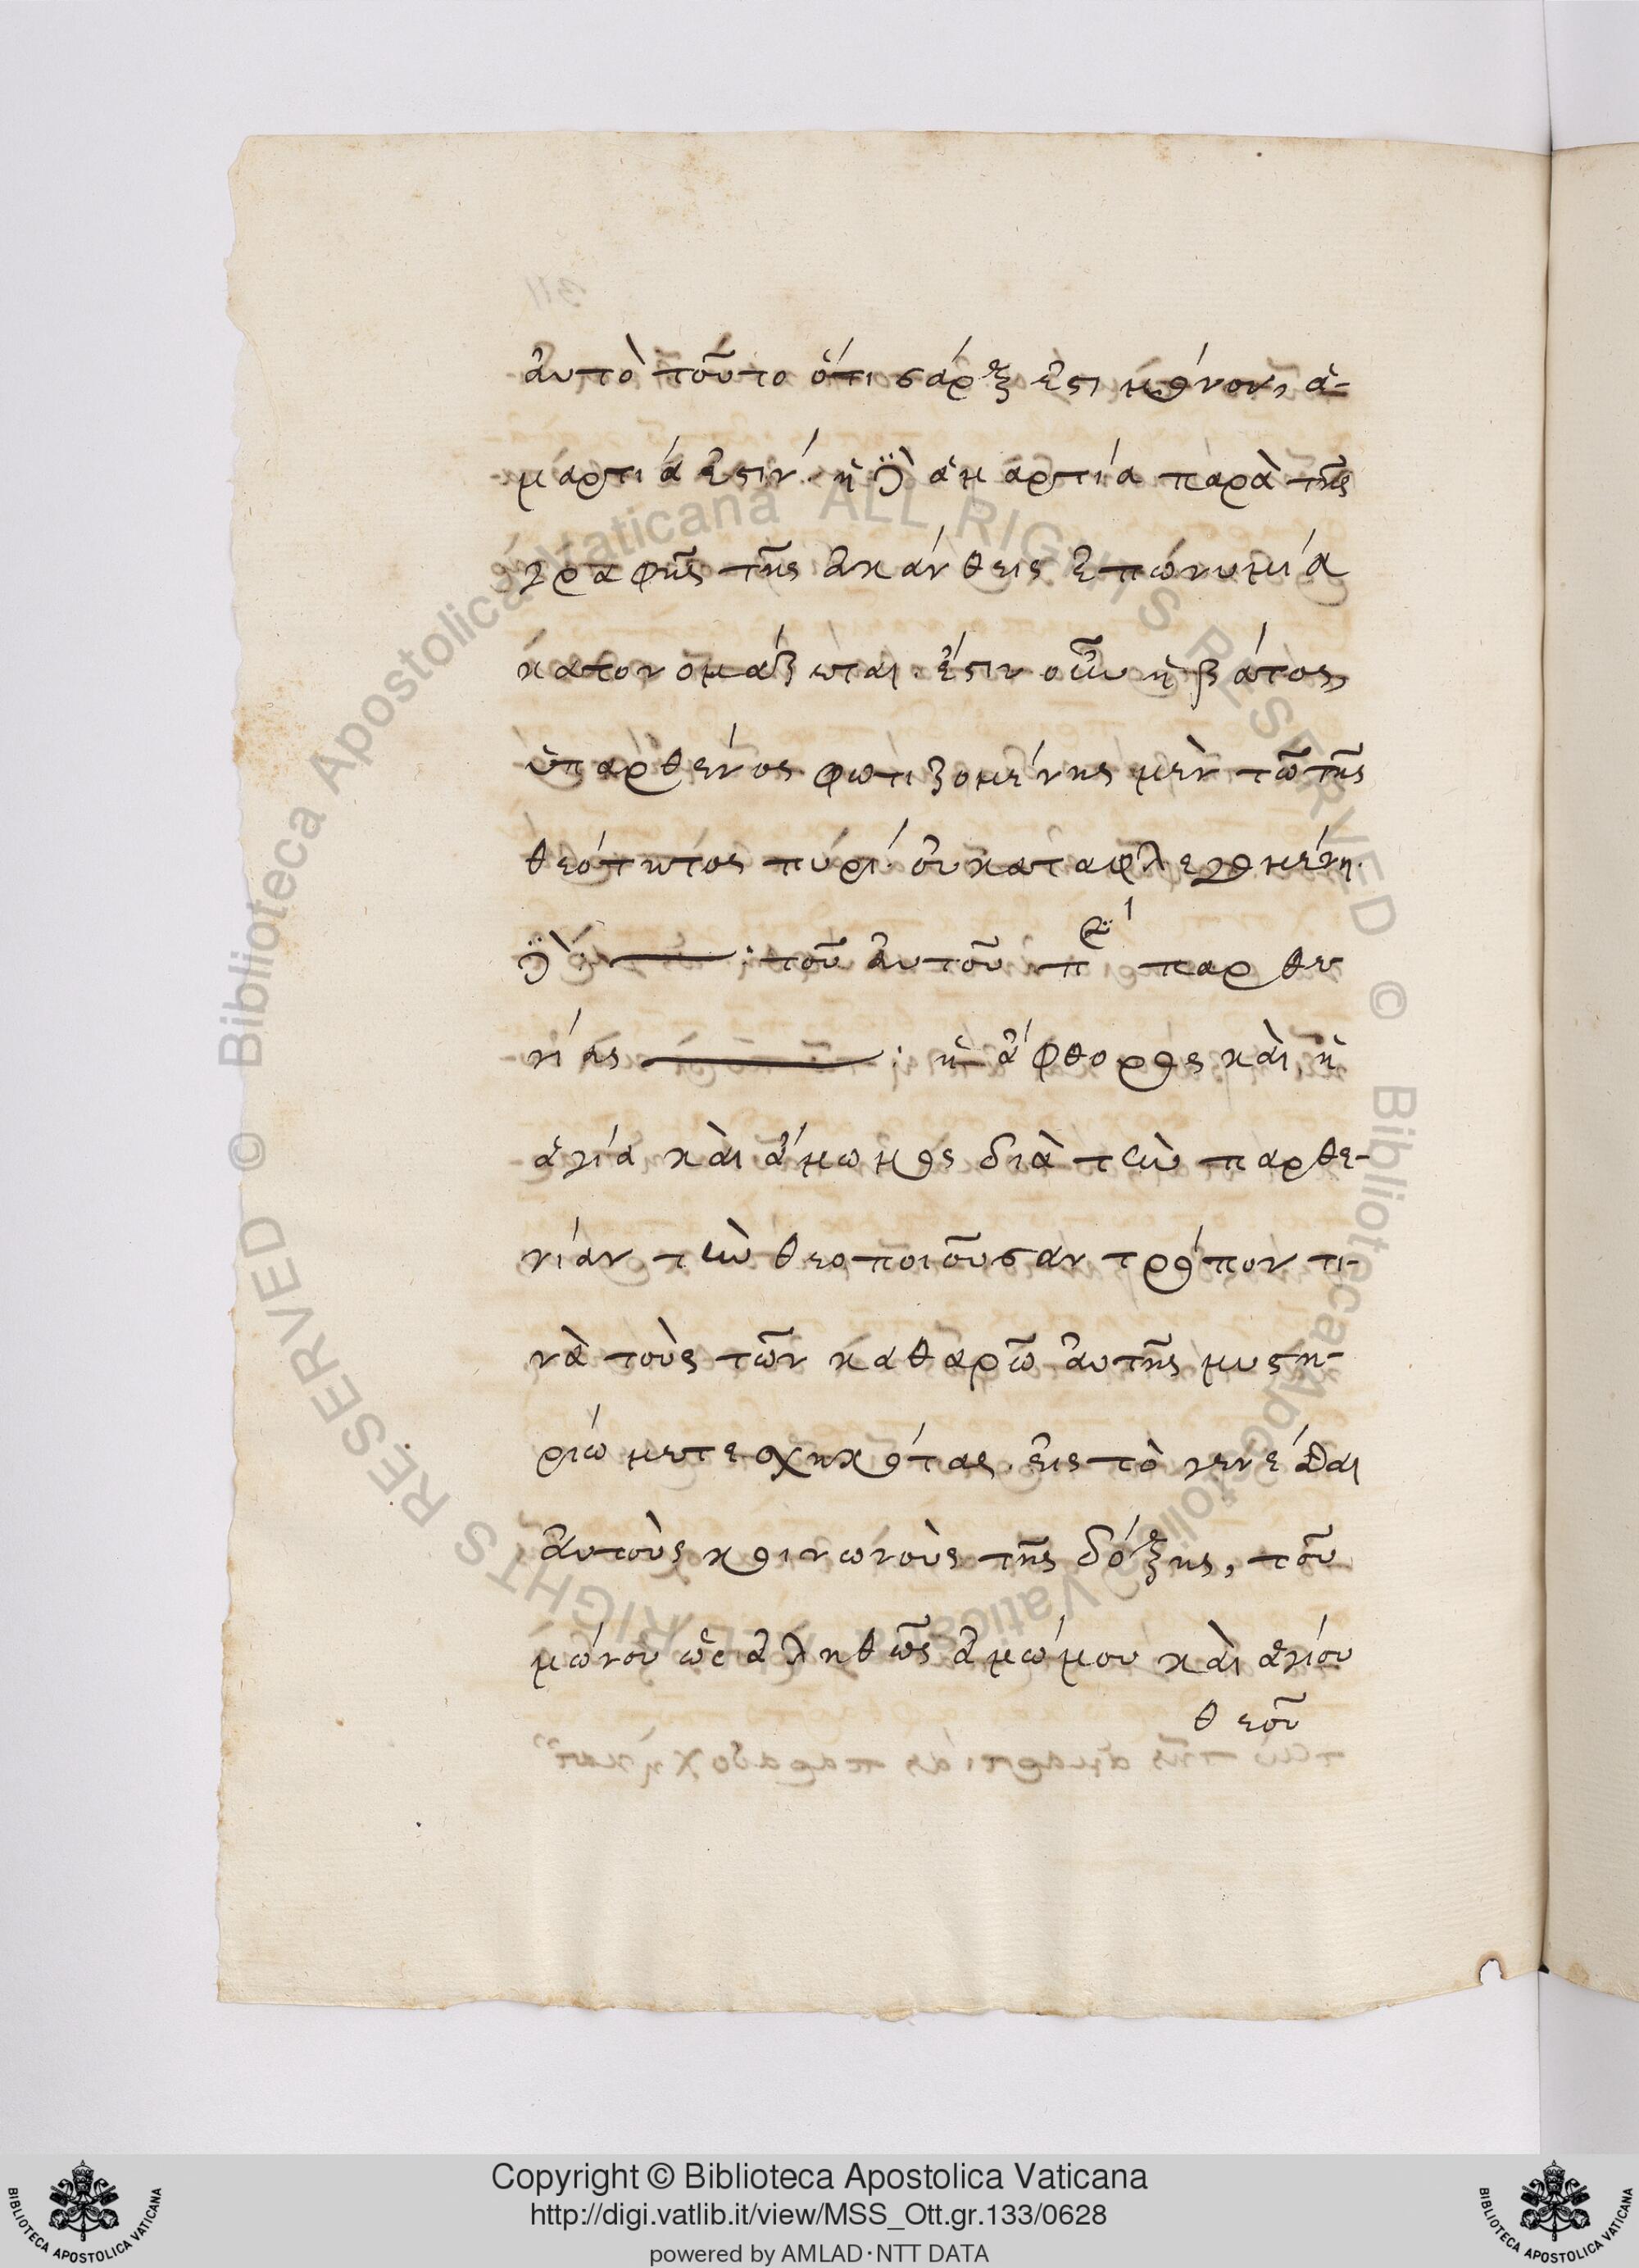 αὐτὸ τοῦτο ὅτι σάρξ ἐστι μόνον, ἁ-
μαρτία ἐστιν· ἡ δὲ ἁμαρτία παρὰ τῆς
γραφῆς τῆς ἀκάνθεις ἐπώνυμία
κατονομάζωται. ἔστιν οὖν ἡ βάτος,
ὑπαρθένος φωτιζομένης μὲν τῶ τῆς
θεότητος πυρί· οὐ καταφλεγομένη
δὲ : τοῦ αὐτοῦ π παρθε
νίας : ἡ ἄφθορος καὶ ἡ
ἁγία καὶ ἄμωμος διὰ τὴν παρθε-
νίαν τὴν θεοποιοῦσαν τρόπον τι-
νὰ τοὺς τῶν καθαρῶ αὐτῆς μυστη-
ρίω μετεσχηκότας. εἰς τὸ γενέσθαι
αὐτοὺς κοινωνοὺς τῆς δόξης, τοῦ
μώνου ὡς ἀληθῶς ἀμώμου καὶ ἁγίου
θεοῦ
Copyright © Biblioteca Apostolica Vaticana
http://digi.vatlib.it/view/MSS_Ott.gr.133/0628
powered by AMLAD·NTT DATA
BIBLIOTECA APOSTOLICA VATICANA
BIBLIOTECA APOSTOLICA VATICANA
© Biblioteca Apostolica Vaticana ALL RIGHTS RESERVED
© Biblioteca Apostolica Vaticana ALL RIGHTS RESERVED